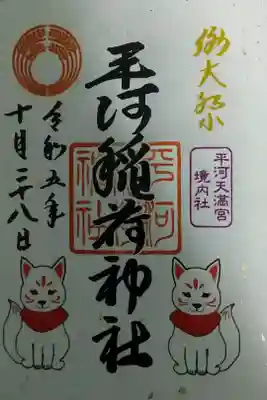 例大祭
平河天満宮
境内社
平河稲荷神社
平河
神社
令和五年
十月二十八日